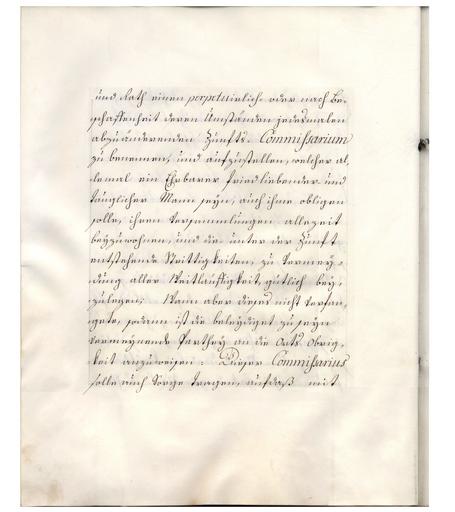 und Rath einen perpetuirlich- oder nach Be-
schaffenheit deren Umständen jedesmalen
abzuänderenden Zunfts-Commissarium
zu benennen, und aufzustellen, welcher al-
lemal ein Ehrbarer friedliebender und
tauglicher Mann seyn, auch ihme obligen
solle, ihren Versammlungen allezeit
beyzuwohnen, und die unter der Zunft
entstehende Streittigkeiten, zu Vermey-
dung aller Weitläufftigkeit, gütlich bey-
zulegen; Wann aber dieses nicht verfan-
gete, sodann ist die beleydiget zu seyn
vermeynende Parthey an die Orts Obrig-
keit anzuweisen: Dieser Commissarius
solle auch Sorge tragen, aufdaß mit